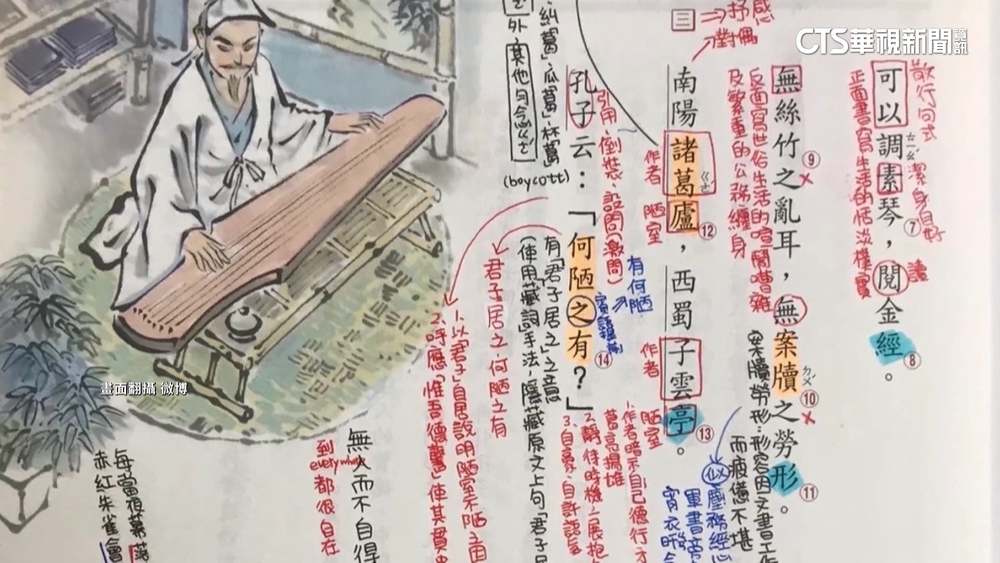 CTS華視新聞資訊
散行句式
潔身自好
讀
可以調素琴，閱金經。
ㄊㄧㄠˊ
⑦
⑧
正面書寫生活的恬淡樸實
無絲竹之亂耳，無案牘之勞形。
ㄉㄨˊ
⑨
⑩
⑪
反面寫世俗生活的喧鬧嘈雜
及繁重的公務纏身
案牘勞形：形容因文書工作
而疲憊不堪
三
⇒抒感
對偶
南陽諸葛廬，西蜀子雲亭。
⑫
⑬
作者 陋室
作者
陋室
1.作者暗示自己德行才
2.靜待時機一展抱
3、自豪、自許認為
孔子云：「何陋之有？」
⑭
引用、倒裝、設問(激問)
有何陋
有「君子居之」之意
(使用藏詞手法,隱藏原文上句「君子居
君子居之，何陋之有
1.以「君子」自居說明陋室不陋之因
2.呼應「惟吾德馨」使其貫串
糾葛、瓜葛、杯葛
(boycott)
外 其他
無入而不自得
到 everywhere 都很自在
每當夜幕落
赤紅朱雀會
畫面翻攝 微博